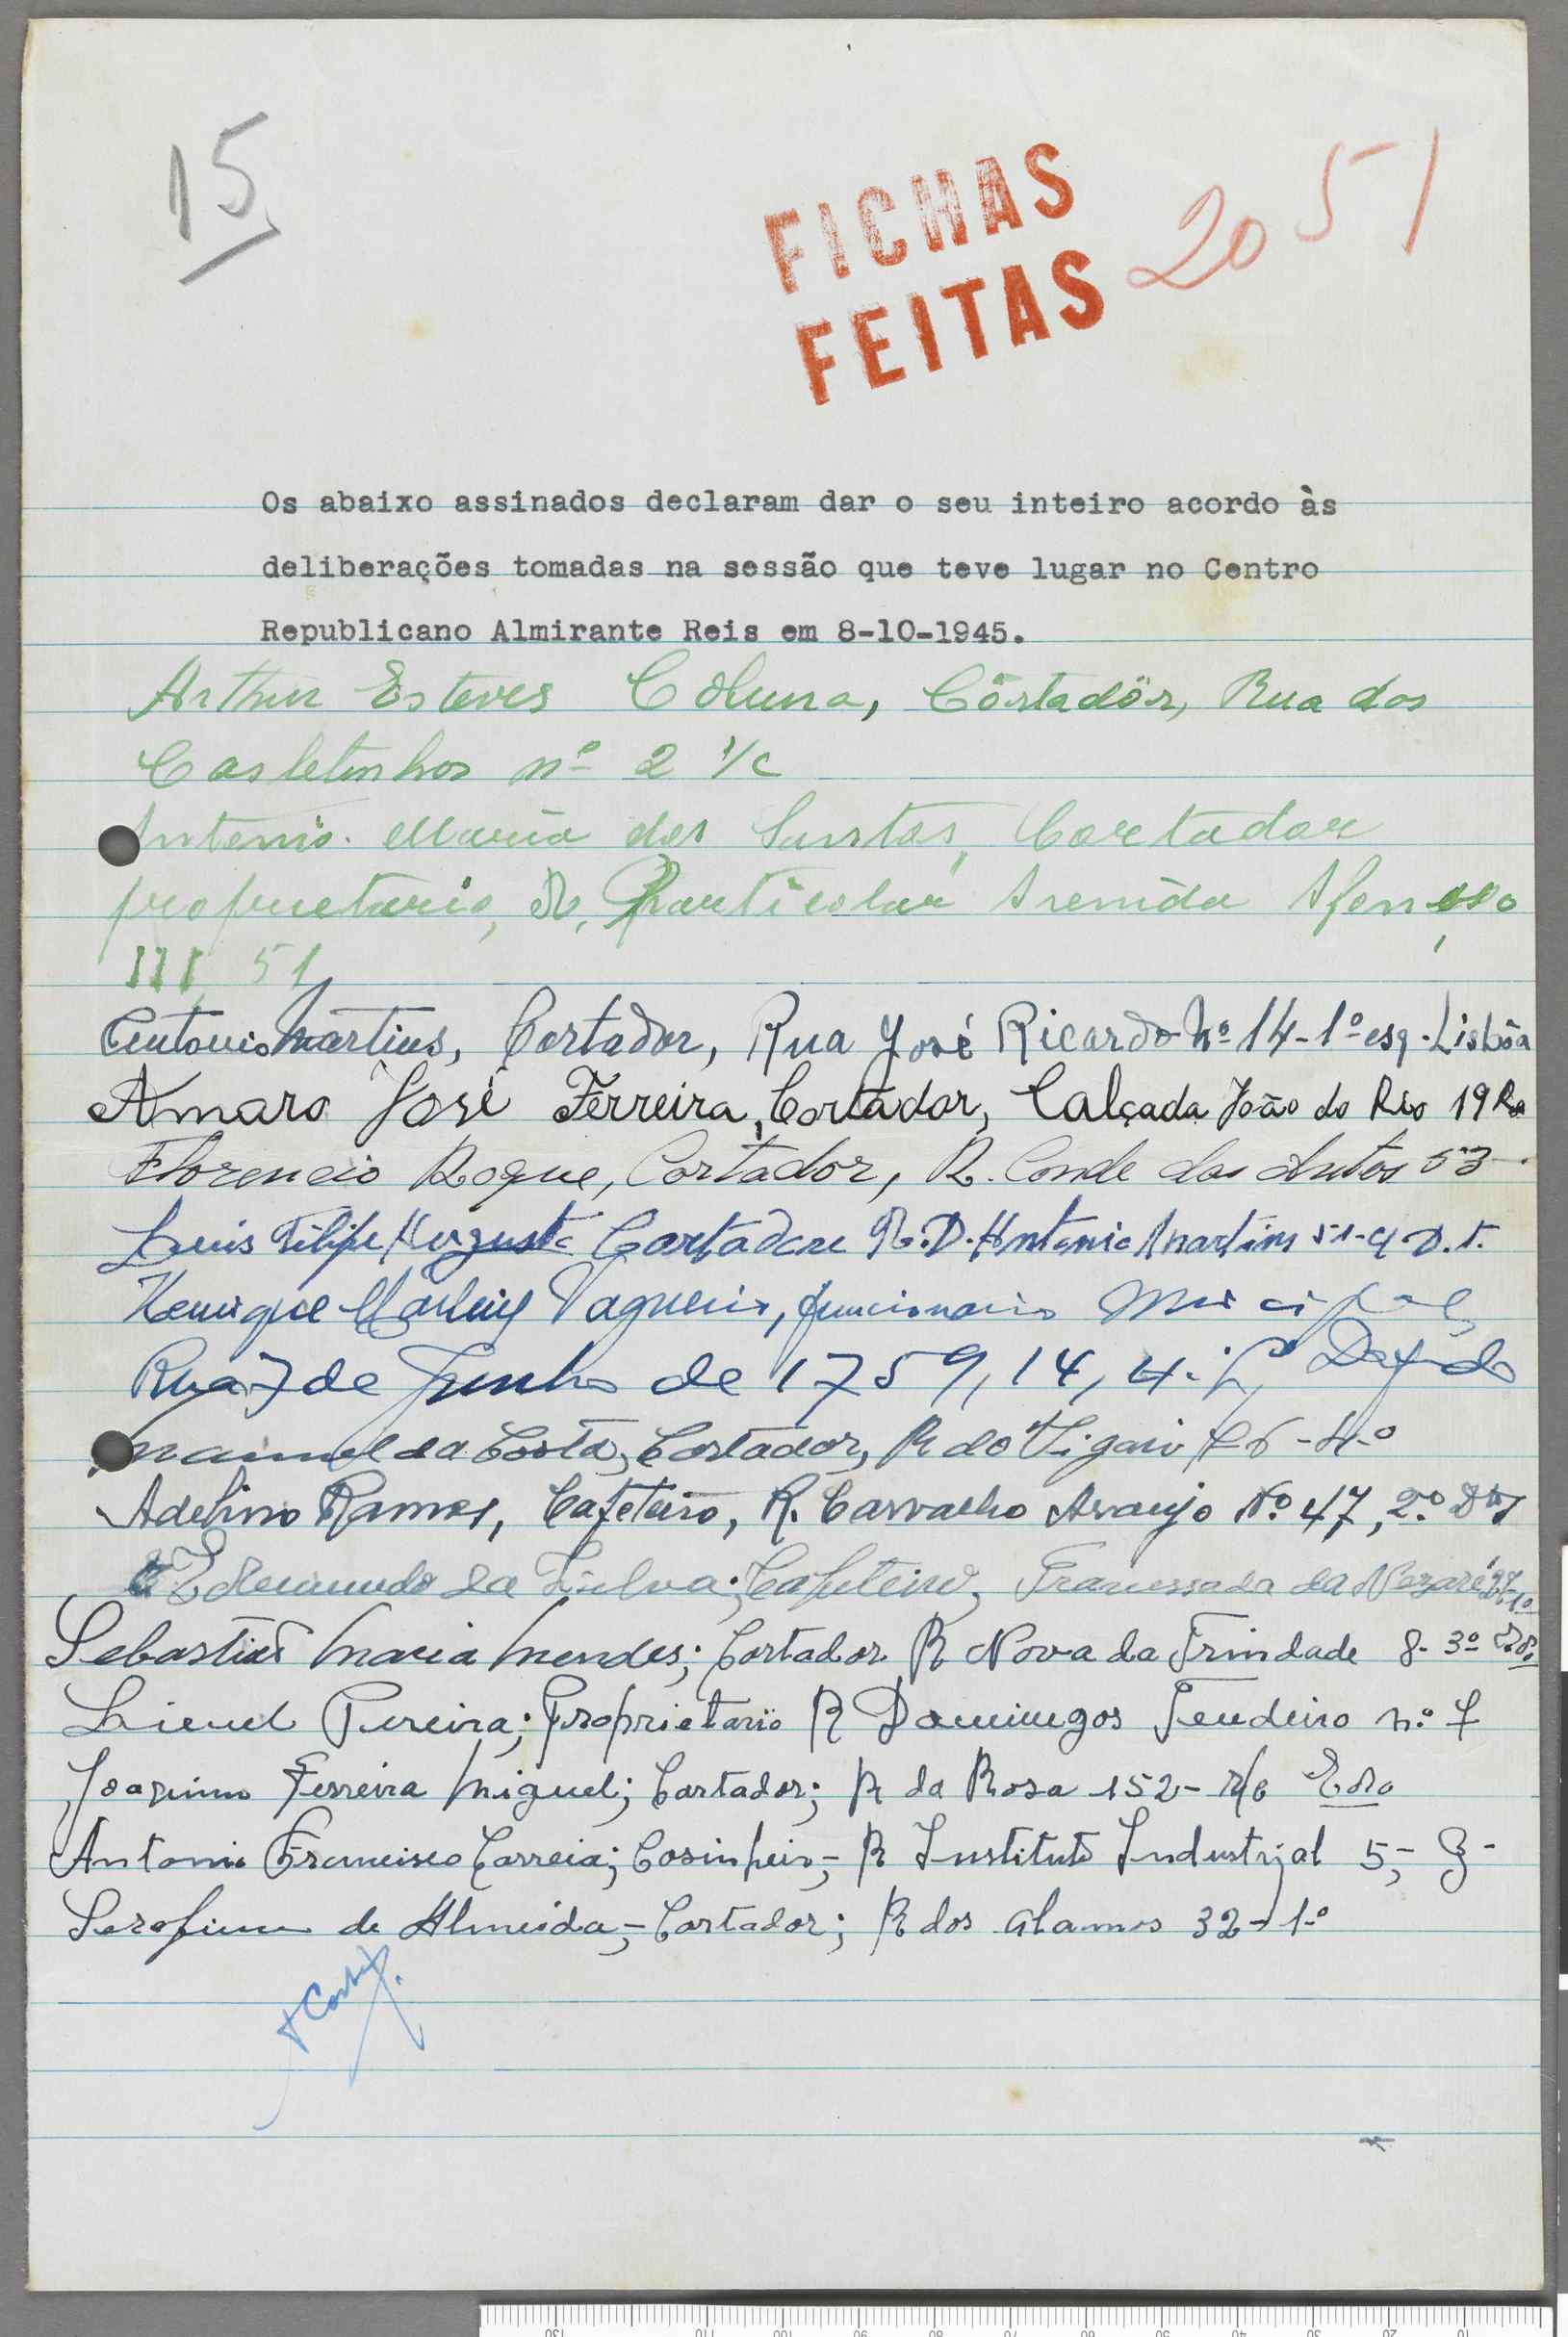 15
FICHAS
FEITAS
2051
Os abaixo assinados declaram dar o seu inteiro acordo às
deliberações tomadas na sessão que teve lugar no Centro
Republicano Almirante Reis em 8-10-1945.
Arthur Esteves Coluna, Côrtadôr, Rua dos
Castelinhos nº 2
Antonio Maria dos Santos, Cortador
proprietario, R, Particolar Avenida Afonso
III, 51
Antonio Martins, Cortador, Rua José Ricardo Nº 14-1º esq. Lisbôa
Amaro José Ferreira, Cortador, Calçada João do Rio 19
Florencio Roque, Cortador, R. Conde das Antas 53
Luis Filipe Augusto Cortador R. D. Antonio Martins 51-4 D.t.
Henrique Vaqueiro, funcionario
Rua 7 de Junho de 1759, 14, 4.
Manuel da Costa, Cortador, R do Vigario 76-4º
Adelino Ramos, Cafeteiro, R. Carvalho Araujo Nº 47, 2º Dto
Edemundo da Silva; Cafeteiro, Travessada da Nazaré
Sebastião Maria Mendes; Cortador R Nova da Trindade 8-3º
Pereira; Proprietario R Domingos Tendeiro nº 7
Joaquim Ferreira Miguel; Cortador; R da Rosa 152- r/c
Antonio Francisco Correia; Cosinheiro,- R Instituto Industrial 5,-
Serafim de Almeida,- Cortador; R dos Alamos 32-1º